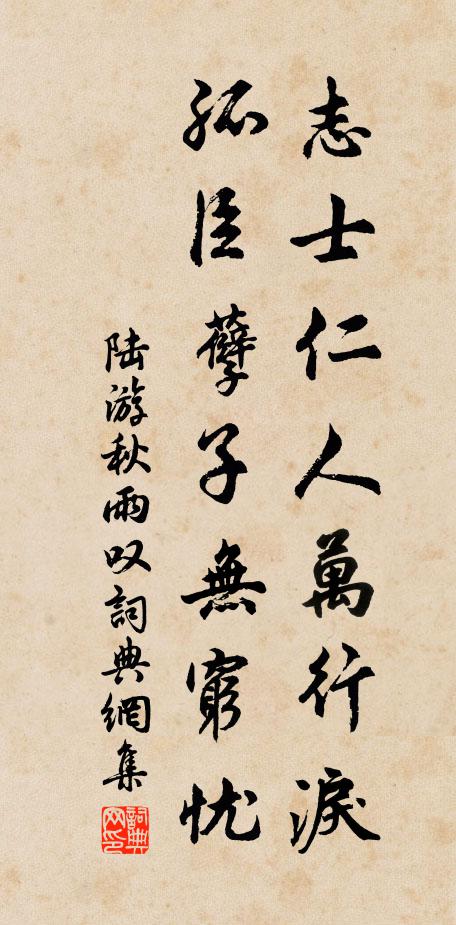 志士仁人萬行淚
孤臣孽子無窮忧
陆游秋雨叹詞典網集
詞典网印